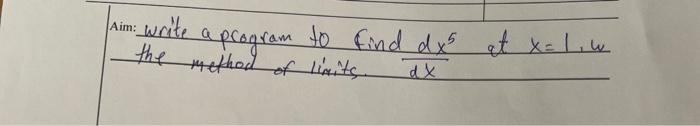 Aim: write a program to find dx⁵/dx at x=1, w
the method of limits.